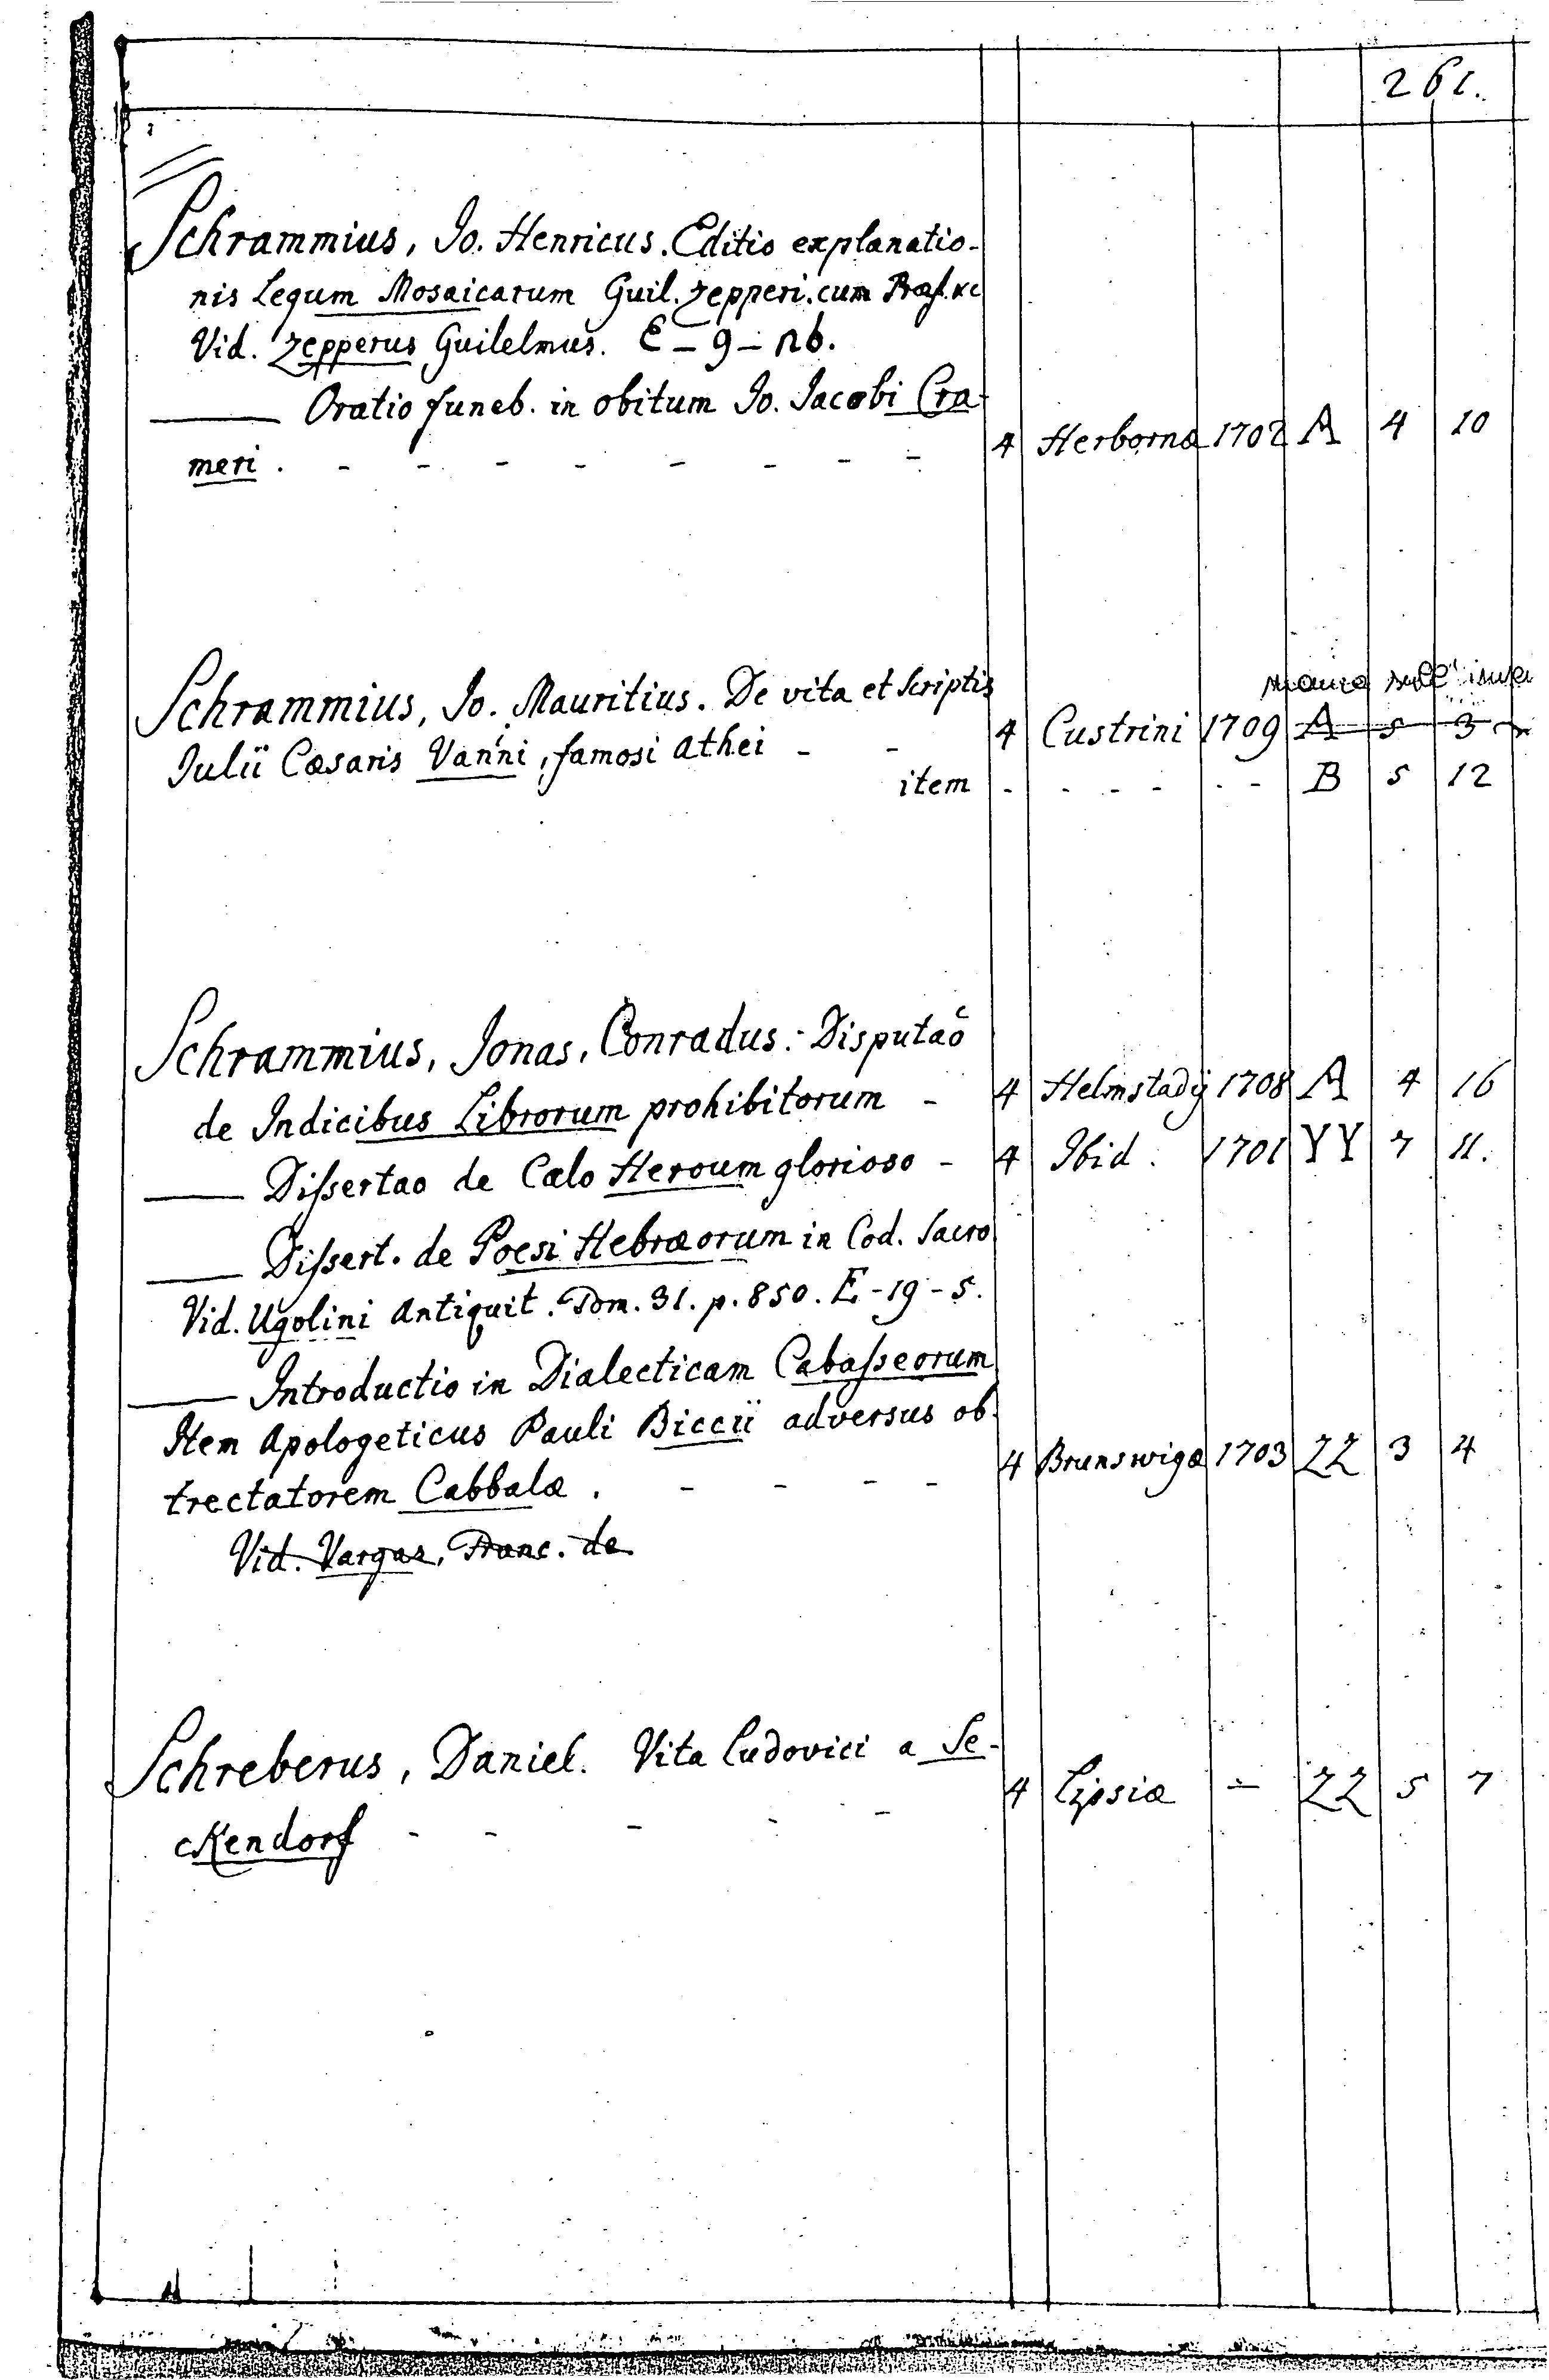 261.
Schrammius, Jo. Henricus. Editio explanatio-
nis Legum Mosaicarum Guil. Zepperi. cum Præf. &c
Vid. Zepperus Guilelmus. E-9-nb.
—— Oratio funeb. in obitum Jo. Jacobi Cra-
meri. - - - - - - - - 4 Hebornæ 1702 A 4 10
manca sull'
Schrammius, Jo. Mauritius. De vita et Scriptis
Julii Cæsaris Vanni, famosi Athei - - 4 Custrini 1709 A 5 3
item - - - - - - B 5 12
Schrammius, Jonas, Conradus. Disputaō
de Indicibus Librorum prohibitorum - 4 Helmstadij 1708 A 4 16
—— Dissertao de Cælo Heroum glorioso - 4 Ibid. 1701 YY 7 11.
—— Dissert. de Poesi Hebræorum in Cod. Sacro
Vid. Ugolini Antiquit. Tom. 31. p. 850. E-19-5.
—— Introductio in Dialecticam Cabasseorum
Item Apologeticus Pauli Biccii adversus ob-
trectatorem Cabbalæ. - - - - 4 Brunswigæ 1703 ZZ 3 4
Vid. Vargas, Franc. de
Schreberus, Daniel. Vita Ludovici a Se-
ckendorf - - - - - 4 Lipsiæ - ZZ 5 7